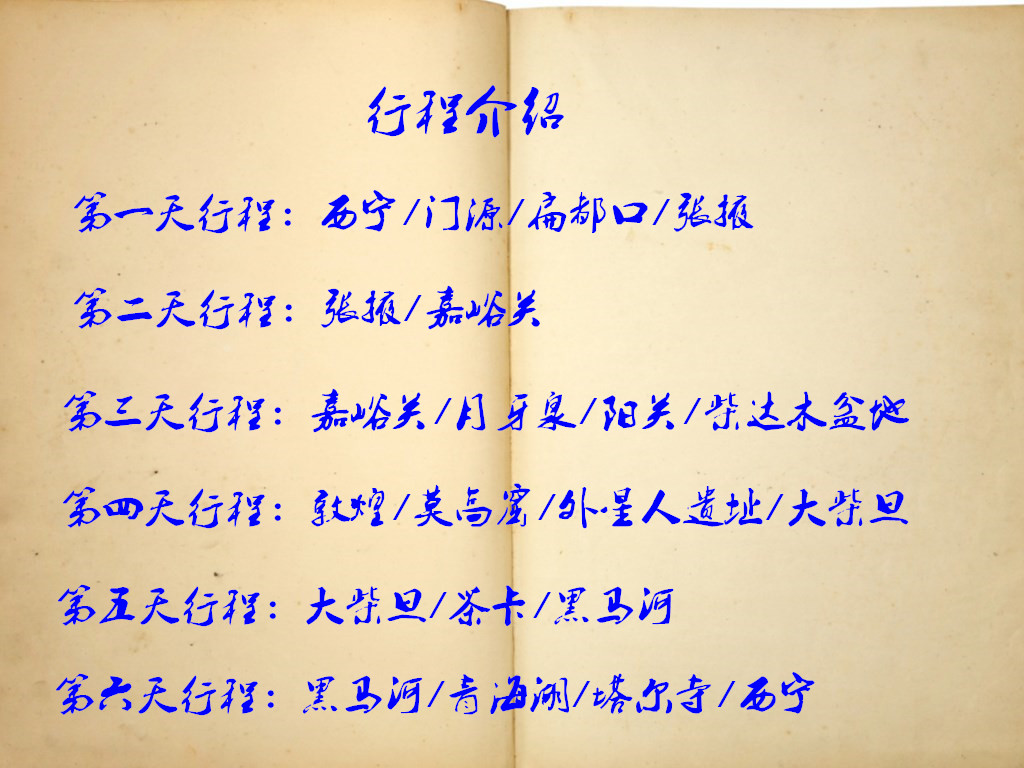 行程介绍
第一天行程：西宁/门源/扁都口/张掖
第二天行程：张掖/嘉峪关
第三天行程：嘉峪关/月牙泉/阳关/柴达木盆地
第四天行程：敦煌/莫高窟/外星人遗址/大柴旦
第五天行程：大柴旦/茶卡/黑马河
第六天行程：黑马河/青海湖/塔尔寺/西宁